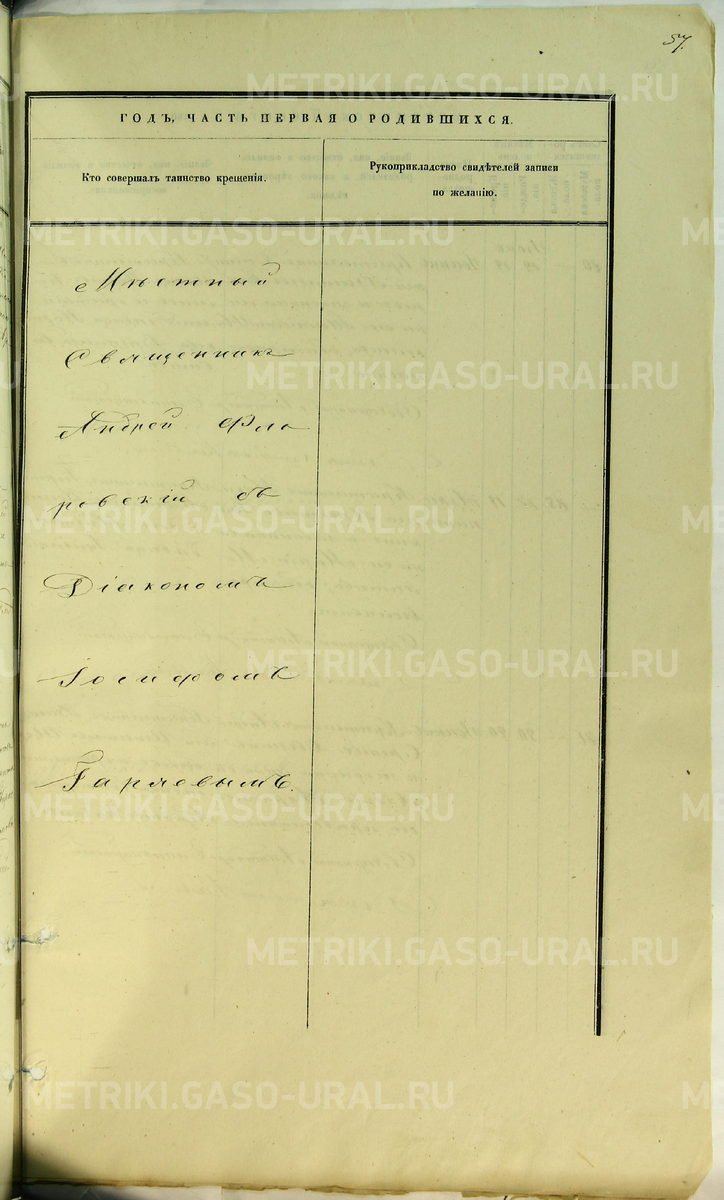 57.
ГОДЪ, ЧАСТЬ ПЕРВАЯ О РОДИВШИХСЯ.
Кто совершалъ таинство крещенія.
Рукоприкладство свидѣтелей записи
по желанію.
Мѣстный
Священникъ
Андрей Фло
ровскій съ
Діакономъ
Іосифомъ
Гаряевымъ.
METRIKI.GASO-URAL.RU